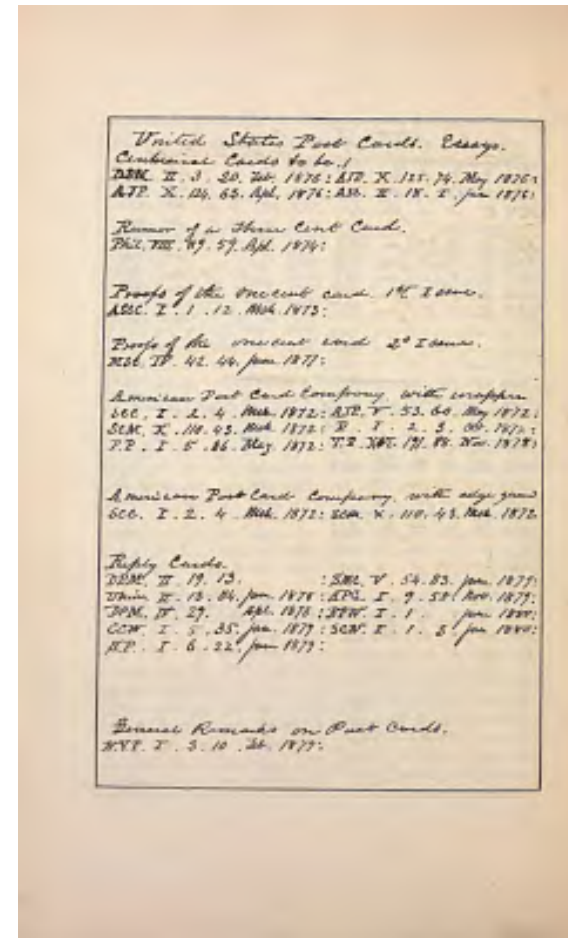 United States Post Cards. Essays.
Centennial Cards to be.
II. 3. 20. Feb. 1876: AJP. X. 125. 74. May 1876:
AJP. X. 124. 63. Apl. 1876: II. 18. I. Jan 1876:
Rumor of a Three Cent Card.
Phil. VIII. 89. 59. Apl. 1874:
Proofs of the one cent card. 1st Issue.
I. 1. 12. Mch. 1873:
Proofs of the one cent card 2d Issue.
IV. 42. 44. June 1877:
American Post Card Company, with wrapper
SCC. I. 2. 4. Mch. 1872: AJP. V. 53. 60. May 1872:
SCM. X. 110. 43. Mch. 1872: I. 2. 3. Oct. 1872:
P.P. I. 5. 36. May. 1872: Nov. 1878:
American Post Card Company, with edge
SCC. I. 2. 4. Mch. 1872: SCM. X. 110. 43. Mch. 1872
Reply Cards.
II. 19. 13. : V. 54. 83. June 1879:
Union II. 13. 84. Jan. 1878: APG. I. 9. 58. Nov. 1879:
IV. 29. Apl. 1878: I. 1. Jan 1880:
CCW. I. 5. 35. Jan. 1879: SCW. I. 1. 3 Jan 1880:
I. 6. 22. June 1879:
General Remarks on Post Cards.
I. 3. 10. Feb. 1879: